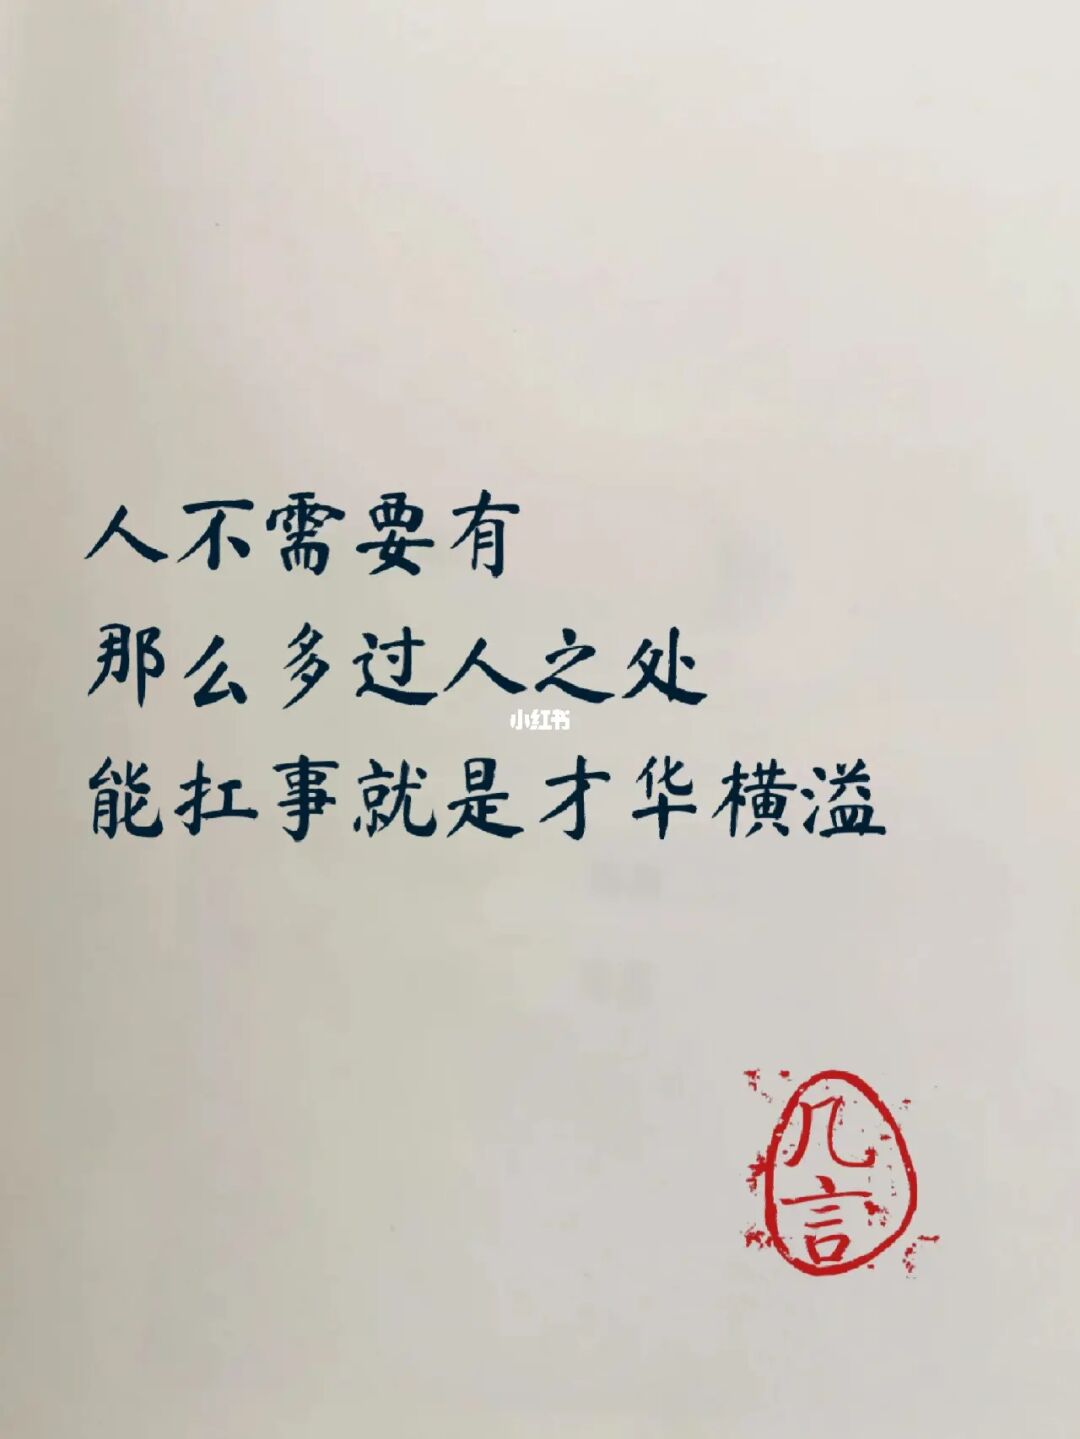 人不需要有
那么多过人之处
小红书
能扛事就是才华横溢
几言